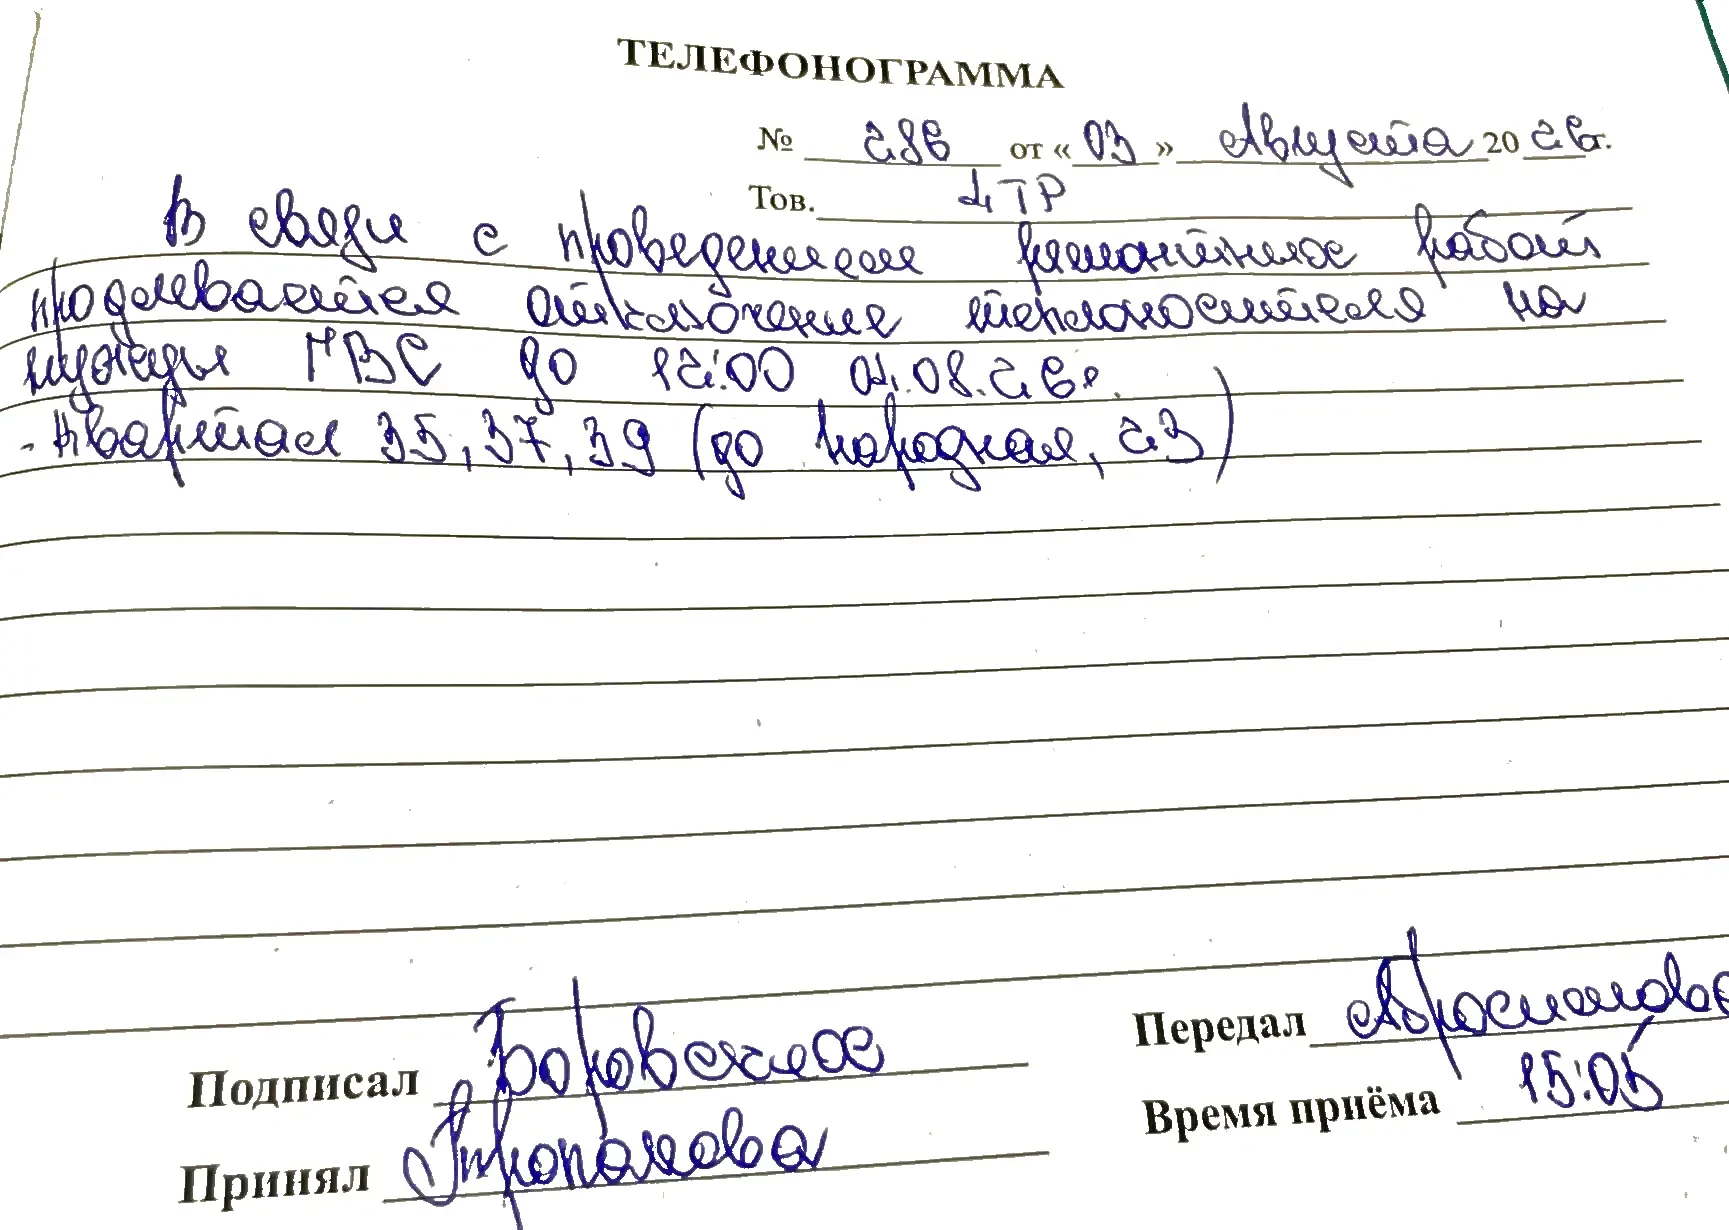 ТЕЛЕФОНОГРАММА
№ 286 от «03» Августа 2026г.
Тов. ЦТР
В связи с проведением ремонтных работ
продлевается отключение теплоносителя на
нужды ГВС до 12:00 04.08.26г.
- квартал 35, 37, 39 (до Народная, 23)
Подписал Боровских
Передал
Принял
Время приёма 15:05